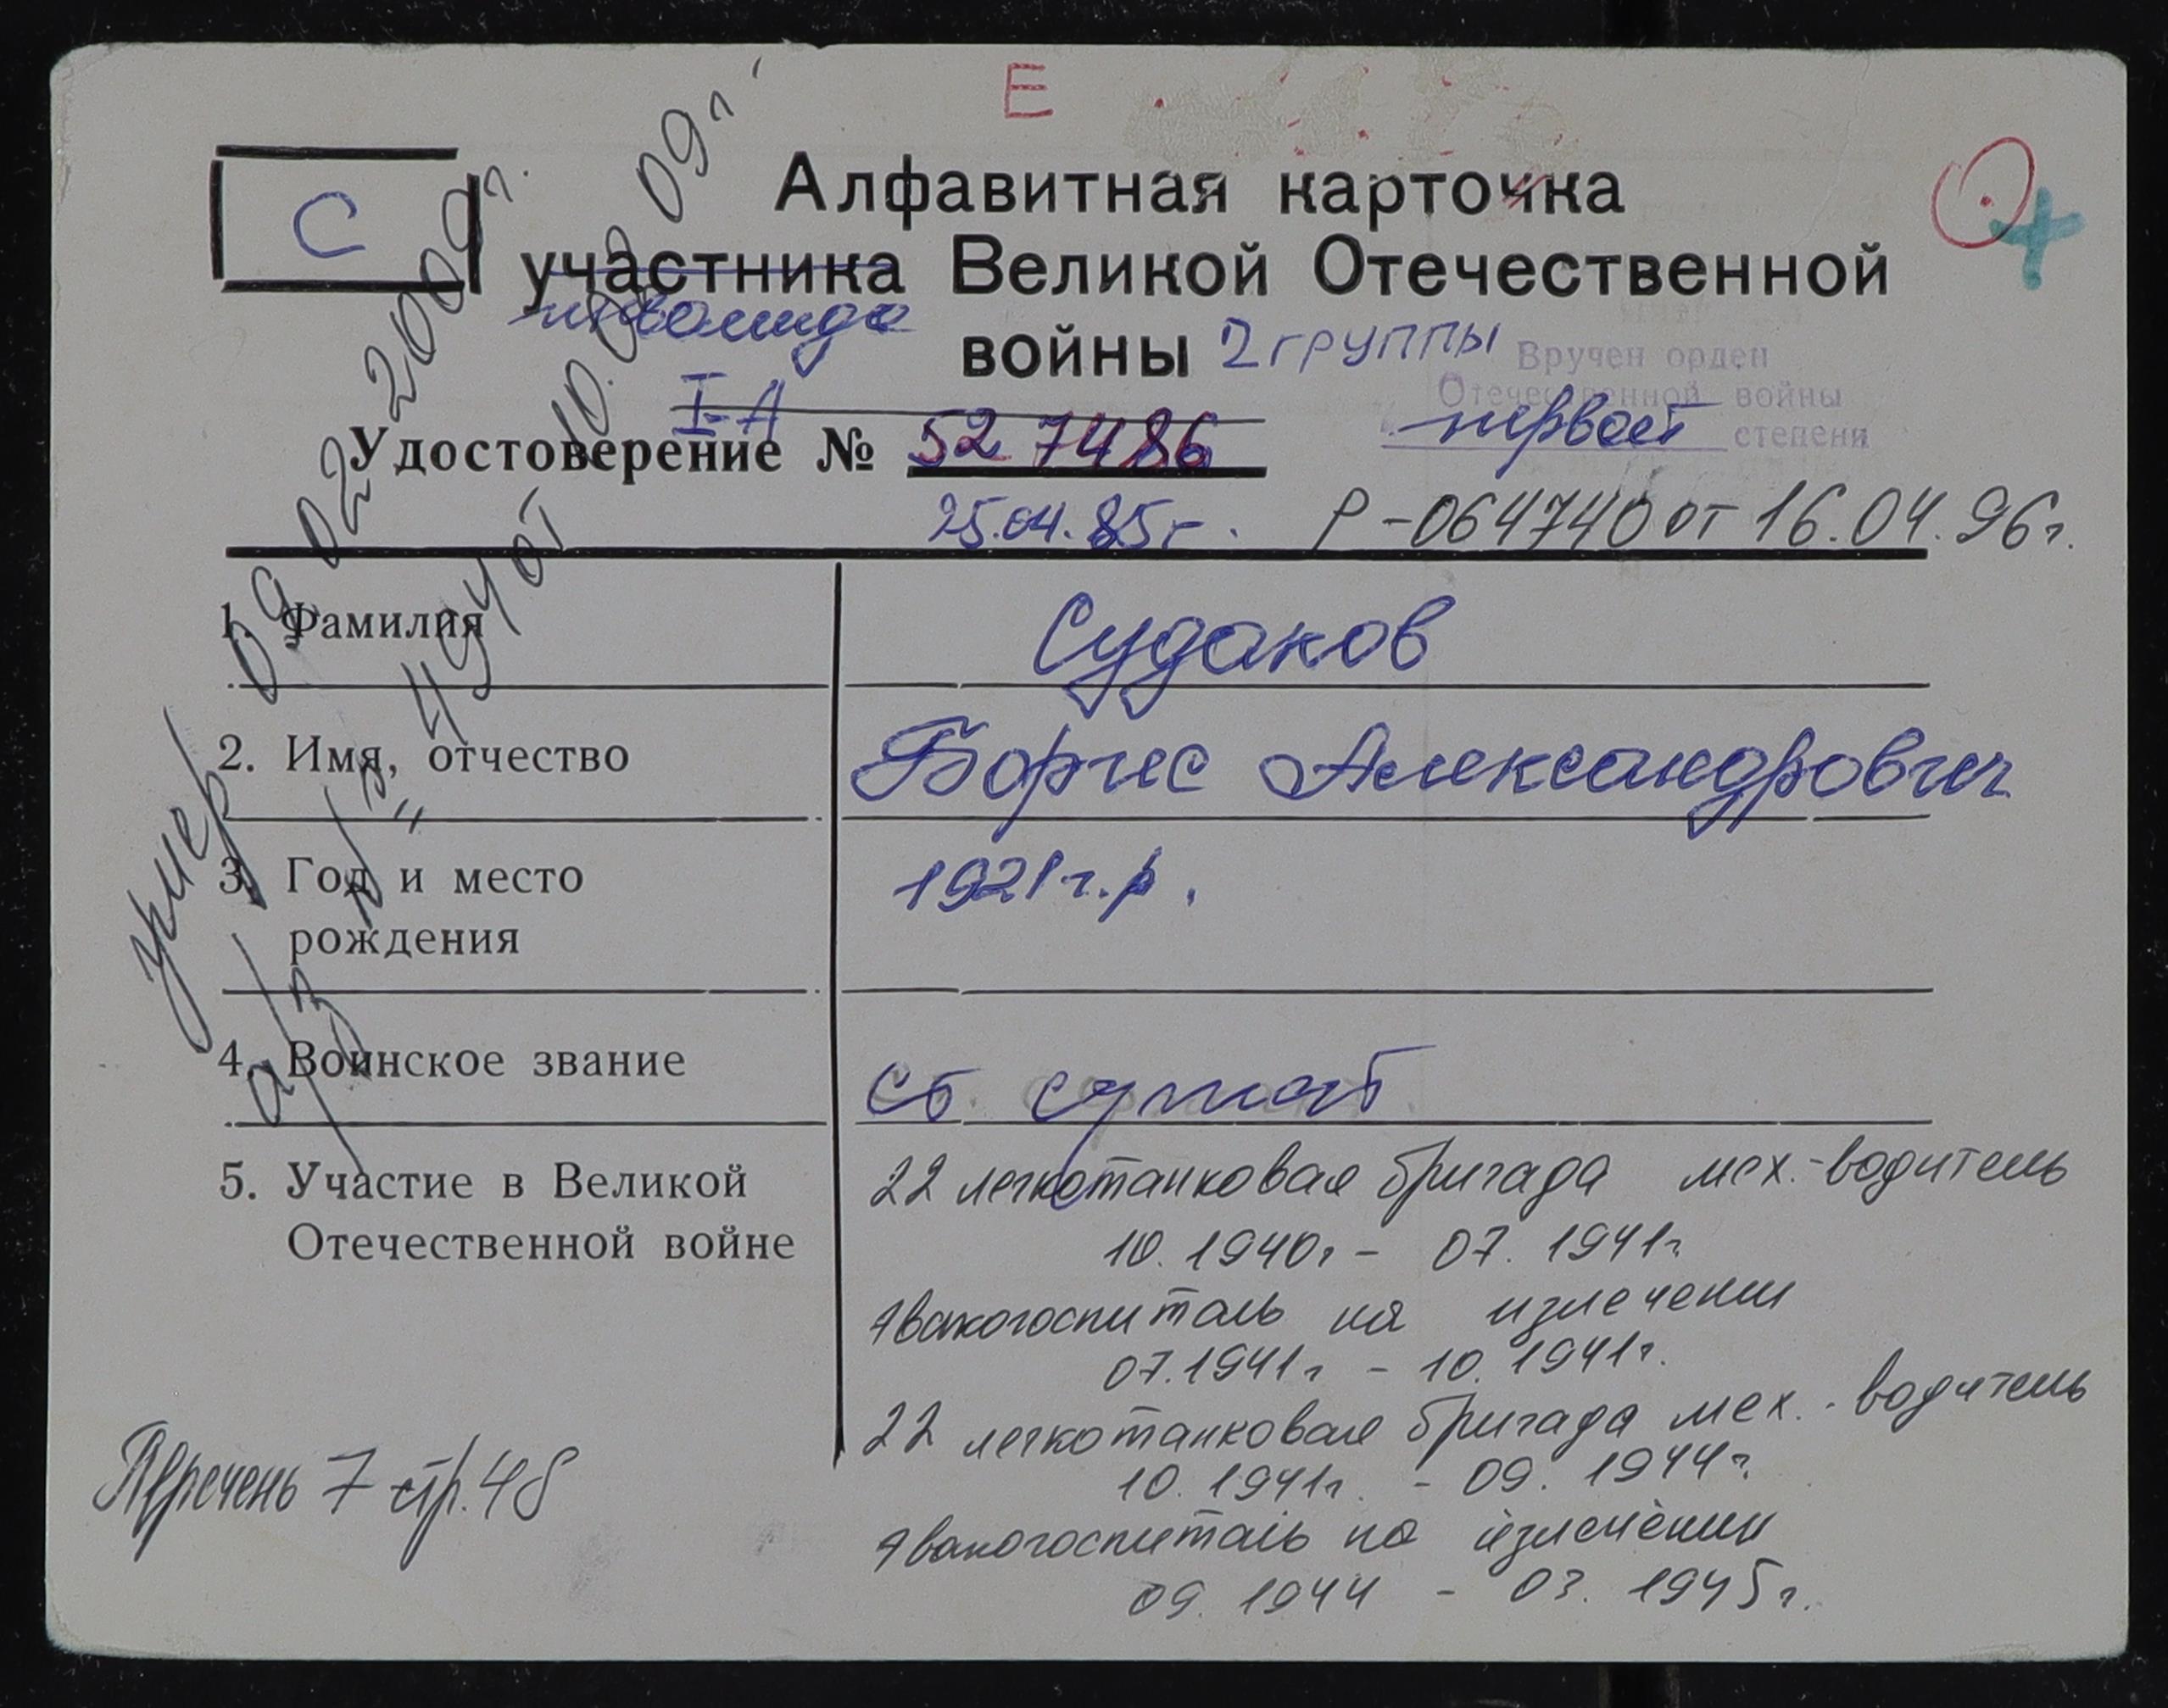 Е
С
Алфавитная карточка
участника Великой Отечественной
инвалида
войны 2 группы
Вручен орден
Отечественной войны
первой степени
I-А
Удостоверение № 527486
25.04.85г.
Р-064740 от 16.04.96г.
умер 09.02.2009г.
а/з № 494 от 10.02.09г.
1. Фамилия
Судаков
2. Имя, отчество
Борис Александрович
3. Год и место
рождения
1921 г.р.
4. Воинское звание
ст сержант
5. Участие в Великой
Отечественной войне
22 легкотанковая бригада мех.-водитель
10.1940г - 07.1941г
эвакогоспиталь на излечении
07.1941г - 10.1941г.
22 легкотанковая бригада мех.-водитель
10.1941г. - 09.1944г.
эвакогоспиталь на излечении
09.1944 - 03.1945г.
Перечень 7 стр. 48